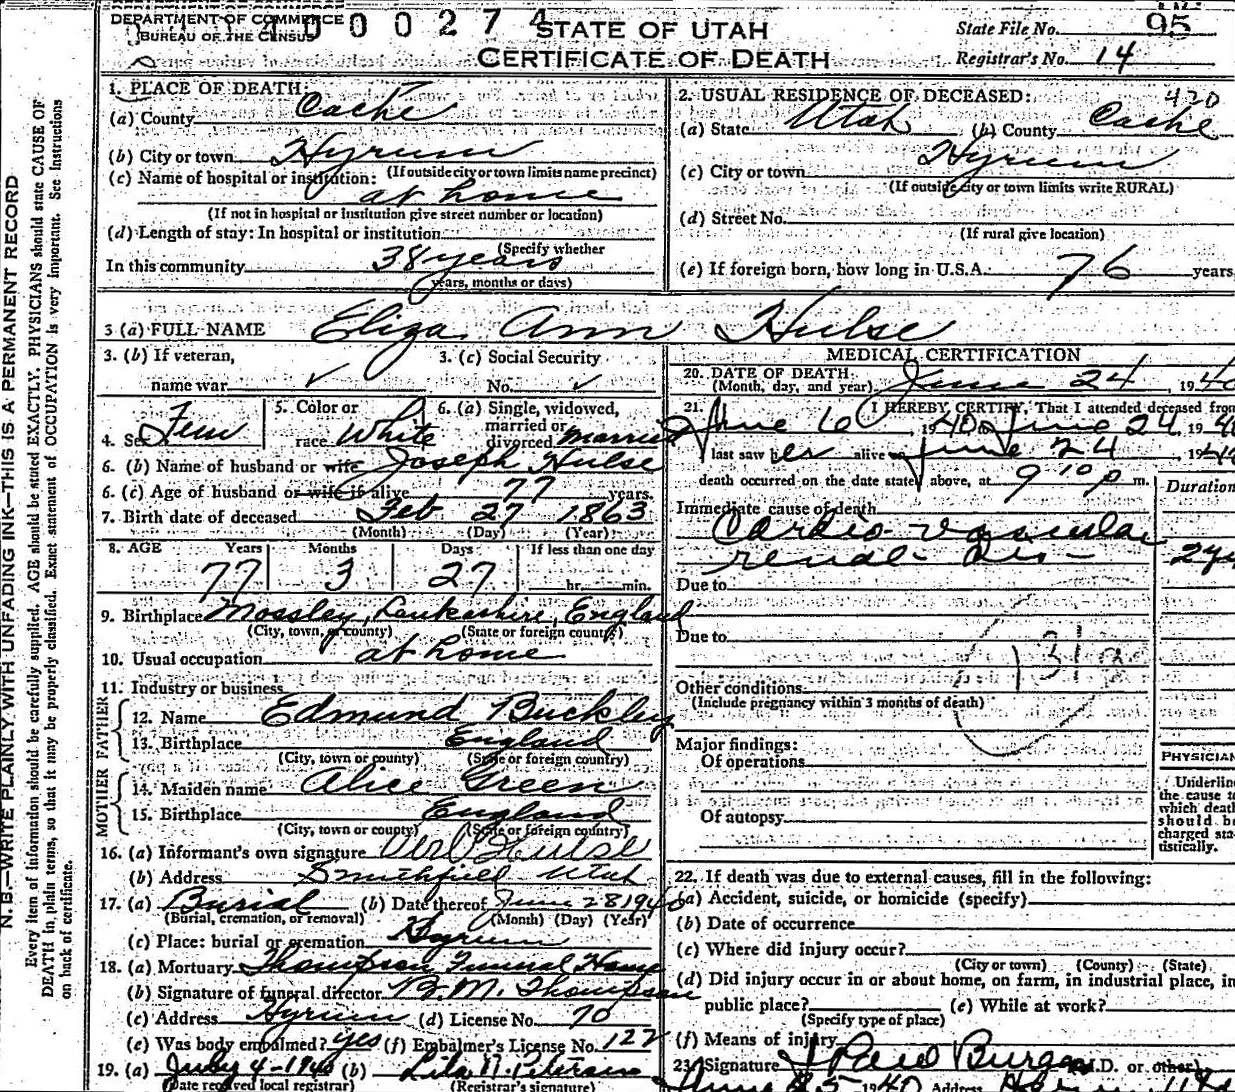 DEPARTMENT OF COMMERCE
BUREAU OF THE CENSUS
0 0 2 7 4
STATE OF UTAH
CERTIFICATE OF DEATH
State File No. 95
Registrar's No. 14
N. B.—WRITE PLAINLY WITH UNFADING INK—THIS IS A PERMANENT RECORD
Every item of information should be carefully supplied. AGE should be stated EXACTLY. PHYSICIANS should state CAUSE OF
DEATH in plain terms, so that it may be properly classified. Exact statement of OCCUPATION is very important. See Instructions
on back of certificate.
1. PLACE OF DEATH:
(a) County Cache
(b) City or town Hyrum
(If outside city or town limits name precinct)
(c) Name of hospital or institution:
at home
(If not in hospital or institution give street number or location)
(d) Length of stay: In hospital or institution
(Specify whether
In this community 38 years
years, months or days)
2. USUAL RESIDENCE OF DECEASED: 420
(a) State Utah (b) County Cache
(c) City or town Hyrum
(If outside city or town limits write RURAL)
(d) Street No.
(If rural give location)
(e) If foreign born, how long in U.S.A. 76 years
3 (a) FULL NAME Eliza Ann Hulse
3. (b) If veteran,
name war ✓
3. (c) Social Security
No. ✓
4. Sex Fem
5. Color or
race White
6. (a) Single, widowed,
married or
divorced Married
6. (b) Name of husband or wife Joseph Hulse
6. (c) Age of husband or wife if alive 77 years.
7. Birth date of deceased Feb 27 1863
(Month) (Day) (Year)
8. AGE Years Months Days If less than one day
77 3 27 hr. min.
9. Birthplace Mossley, Lankashire, England
(City, town, or county) (State or foreign country)
10. Usual occupation at home
11. Industry or business
FATHER
12. Name Edmund Buckley
13. Birthplace England
(City, town or county) (State or foreign country)
MOTHER
14. Maiden name Alice Green
15. Birthplace England
(City, town or county) (State or foreign country)
16. (a) Informant's own signature Hulse
(b) Address Smithfield Utah
17. (a) Burial (b) Date thereof June 28 1940
(Burial, cremation, or removal) (Month) (Day) (Year)
(c) Place: burial or cremation Hyrum
18. (a) Mortuary Thompson Funeral Home
(b) Signature of funeral director B. M. Thompson
(c) Address Hyrum (d) License No. 70
(e) Was body embalmed? yes (f) Embalmer's License No. 122
19. (a) July 4-1940 (b) Lila N. Petersen
(Date received local registrar) (Registrar's signature)
MEDICAL CERTIFICATION
20. DATE OF DEATH
(Month, day, and year) June 24, 1940
21. I HEREBY CERTIFY, That I attended deceased from
June 6 1940 to June 24, 1940
last saw her alive on June 24, 1940
death occurred on the date stated above, at 9 10 p m.
Duration
Immediate cause of death
Cardio-vascular
renal dis-
Due to
Due to
131a
Other conditions
(Include pregnancy within 3 months of death)
Major findings:
Of operations
Of autopsy
PHYSICIAN
Underline
the cause to
which death
should be
charged sta-
tistically.
22. If death was due to external causes, fill in the following:
(a) Accident, suicide, or homicide (specify)
(b) Date of occurrence
(c) Where did injury occur?
(City or town) (County) (State)
(d) Did injury occur in or about home, on farm, in industrial place, in
public place? (e) While at work?
(Specify type of place)
(f) Means of injury
23. Signature J Paul Burgess M.D. or other
1940 Address